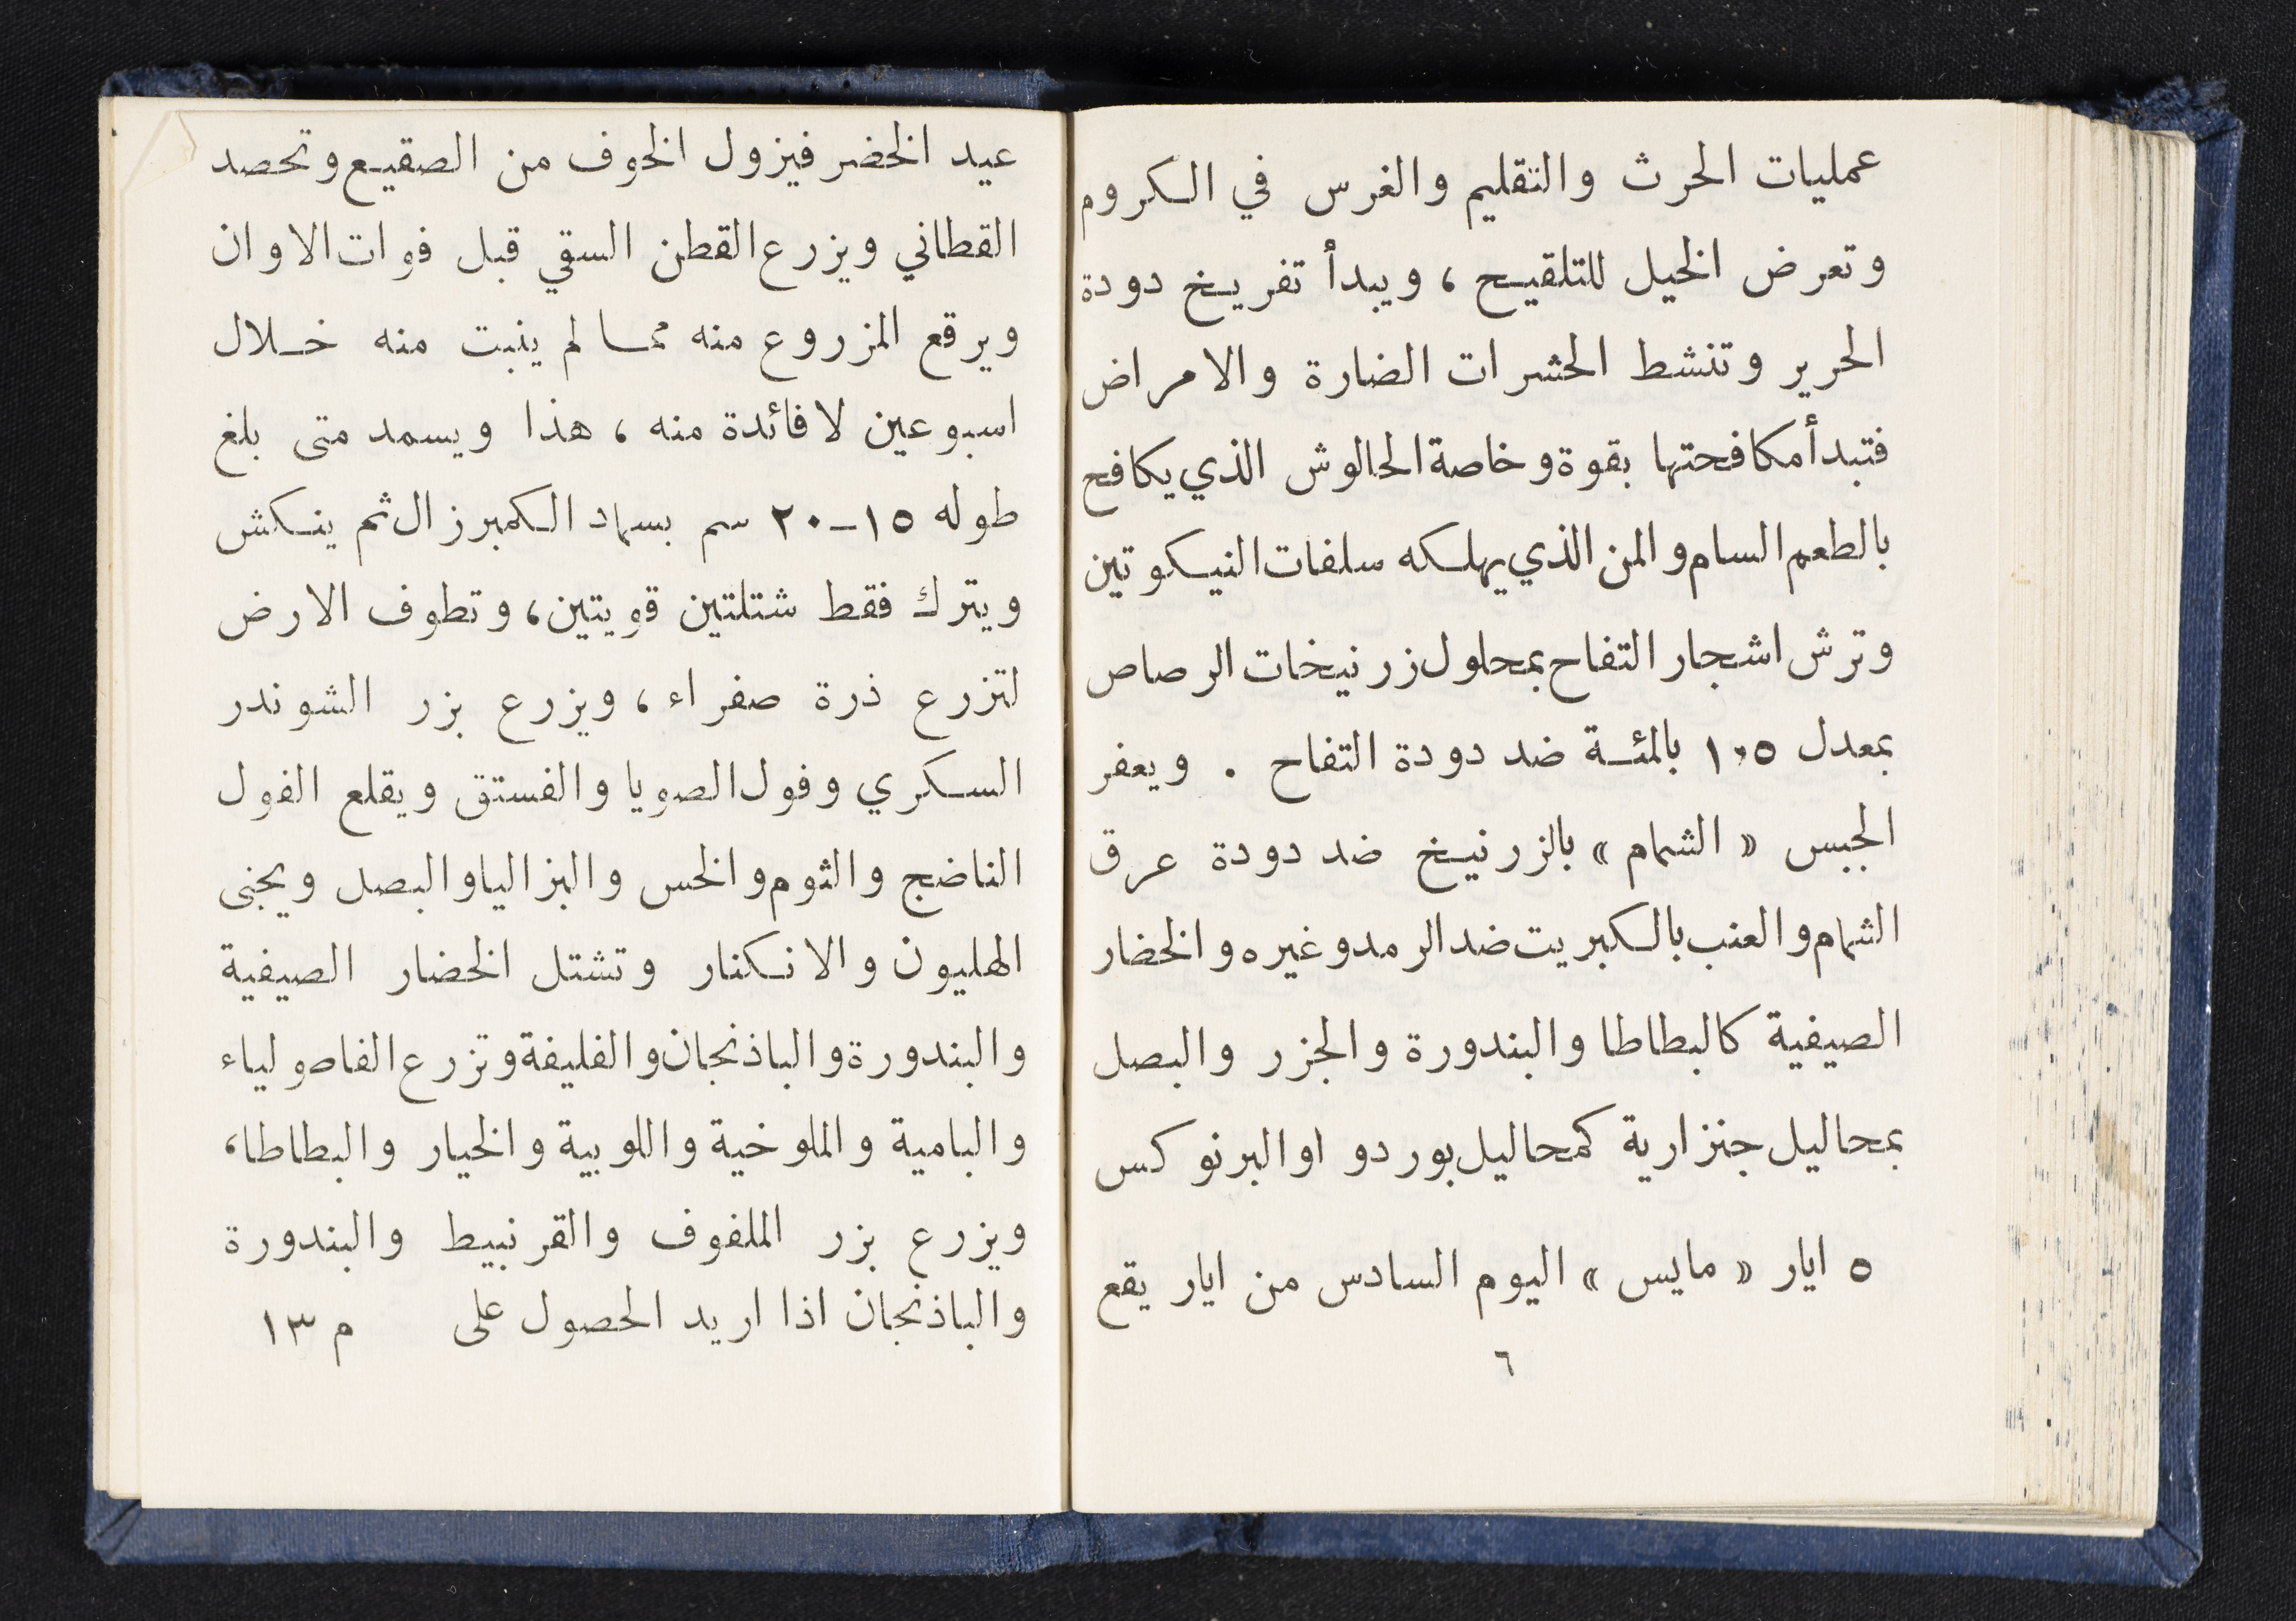 عمليات الحرث والتقليم والغرس في الكروم
وتعرض الخيل للتلقيح ، ويبدأ تفريخ دودة
الحرير وتنشط الحشرات الضارة والامراض
فتبدأ مكافحتها بقوة وخاصة الحالوش الذي يكافح
بالطعم السام والمن الذي يهلكه سلفات النيكوتين
وترش اشجار التفاح بمحلول زرنيخات الرصاص
بمعدل ١،٥ بالمئة ضد دودة التفاح . ويعفر
الجبس « الشمام » بالزرنيخ ضد دودة عرق
الشمام والعنب بالكبريت ضد الرمد وغيره والخضار
الصيفية كالبطاطا والبندورة والجزر والبصل
بمحاليل جنزارية كمحاليل بوردو او البرنوكس
٥ ايار « مايس » اليوم السادس من ايار يقع
٦
عيد الخضر فيزول الخوف من الصقيع وتحصد
القطاني ويزرع القطن السقي قبل فوات الاوان
ويرقع المزروع منه مما لم ينبت منه خلال
اسبوعين لا فائدة منه ، هذا ويسمد متى بلغ
طوله ١٥-٢٠ سم بسماد الكمبرزال ثم ينكش
ويترك فقط شتلتين قويتين، وتطوف الارض
لتزرع ذرة صفراء ، ويزرع بزر الشوندر
السكري وفول الصويا والفستق ويقلع الفول
الناضج والثوم والخس والبزاليا والبصل ويجنى
الهليون والانكنار وتشتل الخضار الصيفية
والبندورة والباذنجان والفليفة وتزرع الفاصولياء
والبامية والملوخية واللوبية والخيار والبطاطا،
ويزرع بزر الملفوف والقرنبيط والبندورة
والباذنجان اذا اريد الحصول على م ١٣